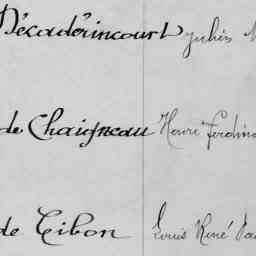 Décadérincourt Jules
de Chaigneau Henri Ferdinan
de Cibon Louis René